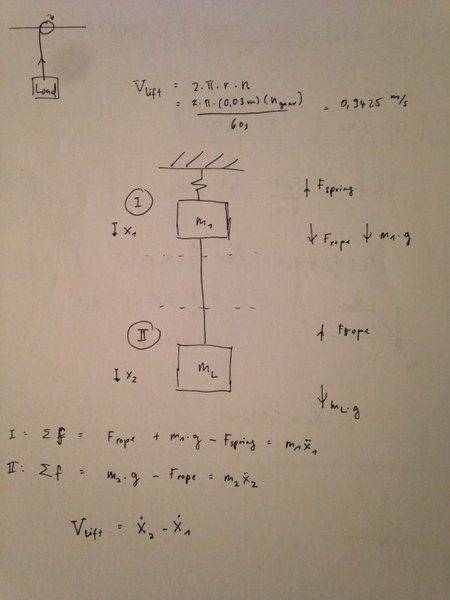 Load
V_lift = 2·π·r·n
= 2·π·(0,03m)(n_gear) / 60s = 0,9425 m/s
I
m₁
x₁
↑ F_spring
↓ F_rope ↓ m₁·g
II
m_L
x₂
↑ F_rope
↓ m_L·g
I: Σf = F_rope + m₁·g - F_spring = m₁ẍ₁
II: Σf = m₂·g - F_rope = m₂ẍ₂
V_lift = ẋ₂ - ẋ₁